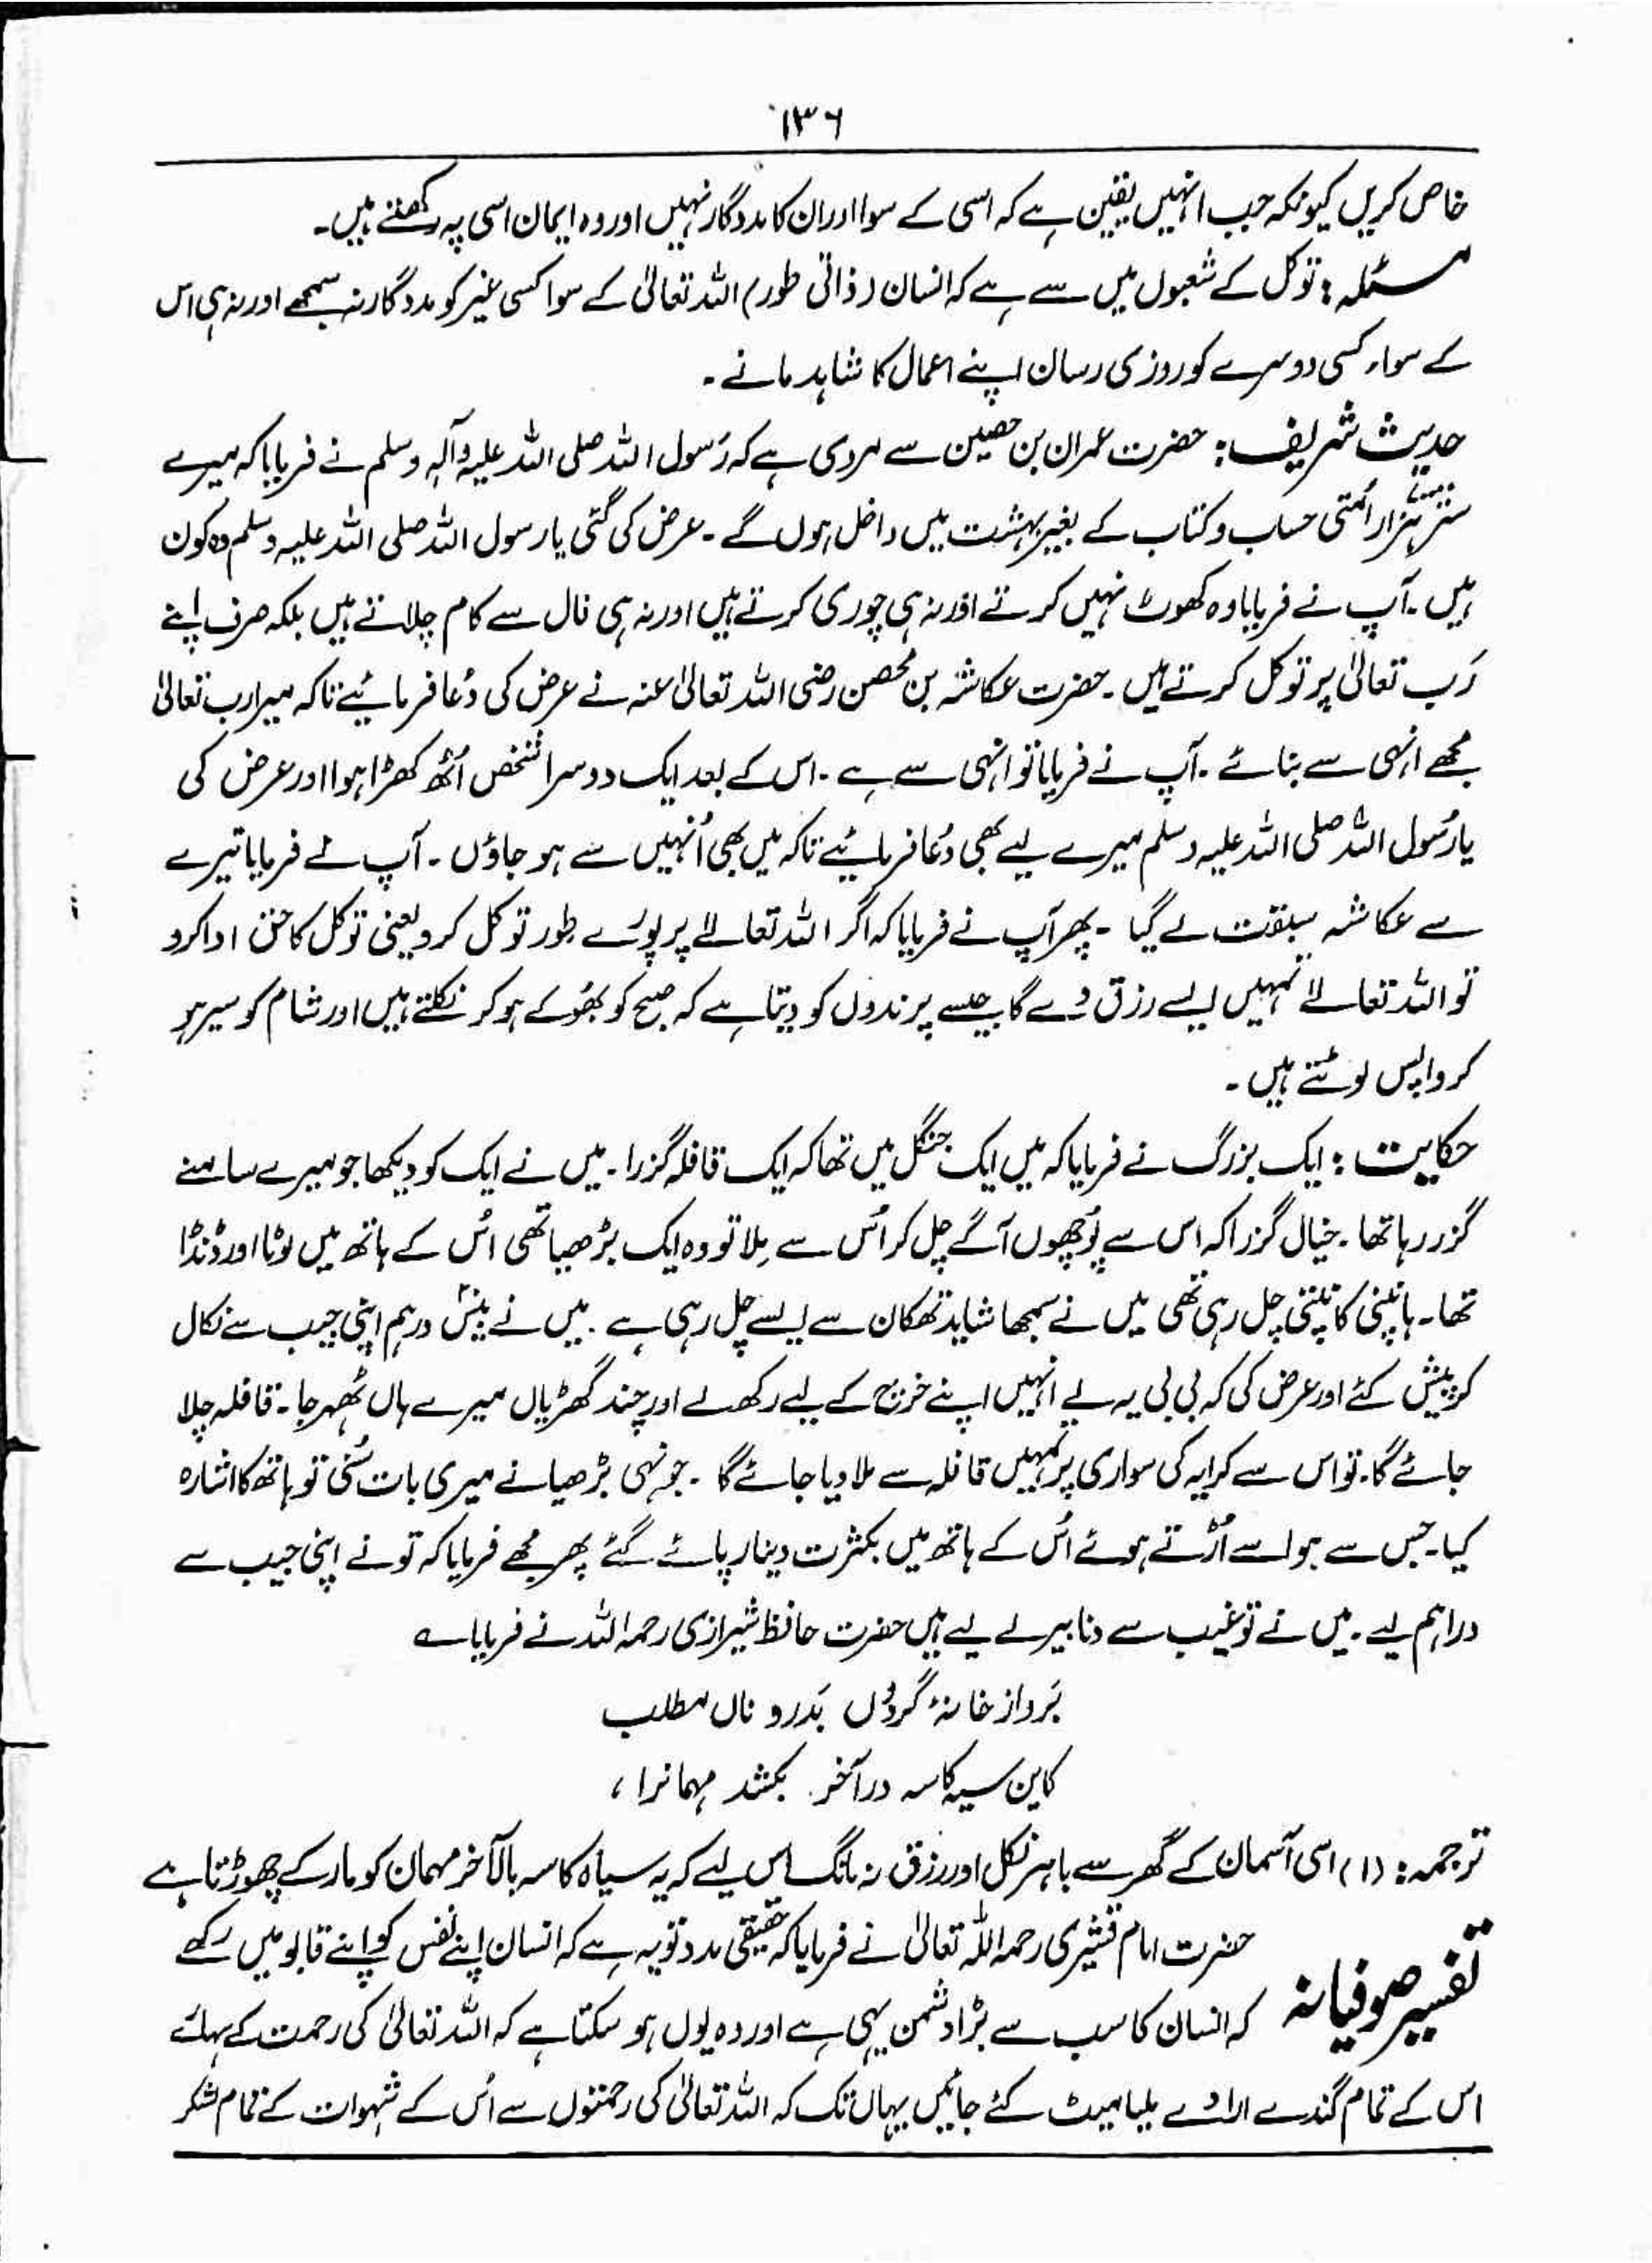 ۱۳۶
خاص کریں کیونکہ جب انہیں یقین ہے کہ اسی کے سوا اور ان کا مددگار نہیں اور وہ ایمان اسی پہ رکھتے ہیں۔
مسئلہ : توکل کے شعبوں میں سے ہے کہ انسان (ذاتی طور) اللہ تعالیٰ کے سوا کسی غیر کو مددگار نہ سمجھے اور نہ ہی اس
کے سواء کسی دوسرے کو روزی رسان اپنے اعمال کا شاہد مانے ۔
حدیث شریف : حضرت عمران بن حصین سے مروی ہے کہ رَسول اللہ صلی اللہ علیہ وآلہٖ وسلم نے فرمایا کہ میرے
ستر ہزار اُمتی حساب و کتاب کے بغیر بہشت میں داخل ہوں گے ۔ عرض کی گئی یا رسول اللہ صلی اللہ علیہ وسلم وہ کون
ہیں ۔ آپ نے فرمایا وہ کھوٹ نہیں کرتے اور نہ ہی چوری کرتے ہیں اور نہ ہی فال سے کام چلاتے ہیں بلکہ صرف اپنے
رَب تعالیٰ پر توکل کرتے ہیں ۔ حضرت عکاشہ بن محصن رضی اللہ تعالیٰ عنہ نے عرض کی دُعا فرمائیے تاکہ میرا رب تعالیٰ
مجھے انہی سے بنائے ۔ آپ نے فرمایا تو انہی سے ہے ۔ اس کے بعد ایک دوسرا شخص اُٹھ کھڑا ہوا اور عرض کی
یا رَسُول اللہ صلی اللہ علیہ وسلم میرے لیے بھی دُعا فرمائیے تاکہ میں بھی اُنہیں سے ہو جاؤں ۔ آپ نے فرمایا تیرے
سے عکاشہ سبقت لے گیا ۔ پھر آپ نے فرمایا کہ اگر اللہ تعالےٰ پر پورے طور توکل کرو یعنی توکل کا حق ادا کرو
تو اللہ تعالےٰ تمہیں ایسے رزق دے گا جیسے پرندوں کو دیتا ہے کہ صبح کو بھُوکے ہو کر نکلتے ہیں اور شام کو سیر ہو
کر واپس لوٹتے ہیں ۔
حکایت : ایک بزرگ نے فرمایا کہ میں ایک جنگل میں تھا کہ ایک قافلہ گزرا ۔ میں نے ایک کو دیکھا جو میرے سامنے
گزر رہا تھا ۔ خیال گزرا کہ اس سے پُوچھوں آگے چل کر اُس سے مِلا تو وہ ایک بڑھیا تھی اُس کے ہاتھ میں لوٹا اور ڈنڈا
تھا ۔ ہانپتی کانپتی چل رہی تھی میں نے سمجھا شاید تھکان سے ایسے چل رہی ہے ۔ میں نے بیس درہم اپنی جیب سے نکال
کر پیش کئے اور عرض کی کہ بی بی یہ لے انہیں اپنے خرچ کے لیے رکھ لے اور چند گھڑیاں میرے ہاں ٹھہر جا ۔ قافلہ چلا
جائے گا ۔ تو اس سے کرایہ کی سواری پر تمہیں قافلہ سے ملا دیا جائے گا ۔ جونہی بڑھیا نے میری بات سُنی تو ہاتھ کا اشارہ
کیا ۔ جس سے ہوا سے اُڑتے ہوئے اُس کے ہاتھ میں بکثرت دینار پائے گئے پھر مجھے فرمایا کہ تو نے اپنی جیب سے
دراہم لیے ۔ میں نے تو غیب سے دنا نیر لے لیے ہیں حضرت حافظ شیرازی رحمہ اللہ نے فرمایا ؎
بَرو از خانۂ گردُوں بَدر و ناں مطلب
کاین سیہ کاسہ در آخر بکشد مہمانرا ،
ترجمہ : (۱) اسی آسمان کے گھر سے باہر نکل اور رزق نہ مانگ اس لیے کہ یہ سیاہ کاسہ بالآخر مہمان کو مار کے چھوڑتا ہے
تفسیر صوفیانہ حضرت امام قشیری رحمہ اللہ تعالیٰ نے فرمایا کہ حقیقی مدد تو یہ ہے کہ انسان اپنے نفس کو اپنے قابو میں رکھے
کہ انسان کا سب سے بڑا دشمن یہی ہے اور وہ یوں ہو سکتا ہے کہ اللہ تعالیٰ کی رحمت کے سہارے
اس کے تمام گندے ارادے ملیا میٹ کئے جائیں یہاں تک کہ اللہ تعالیٰ کی رحمتوں سے اُس کے شہوات کے تمام لشکر